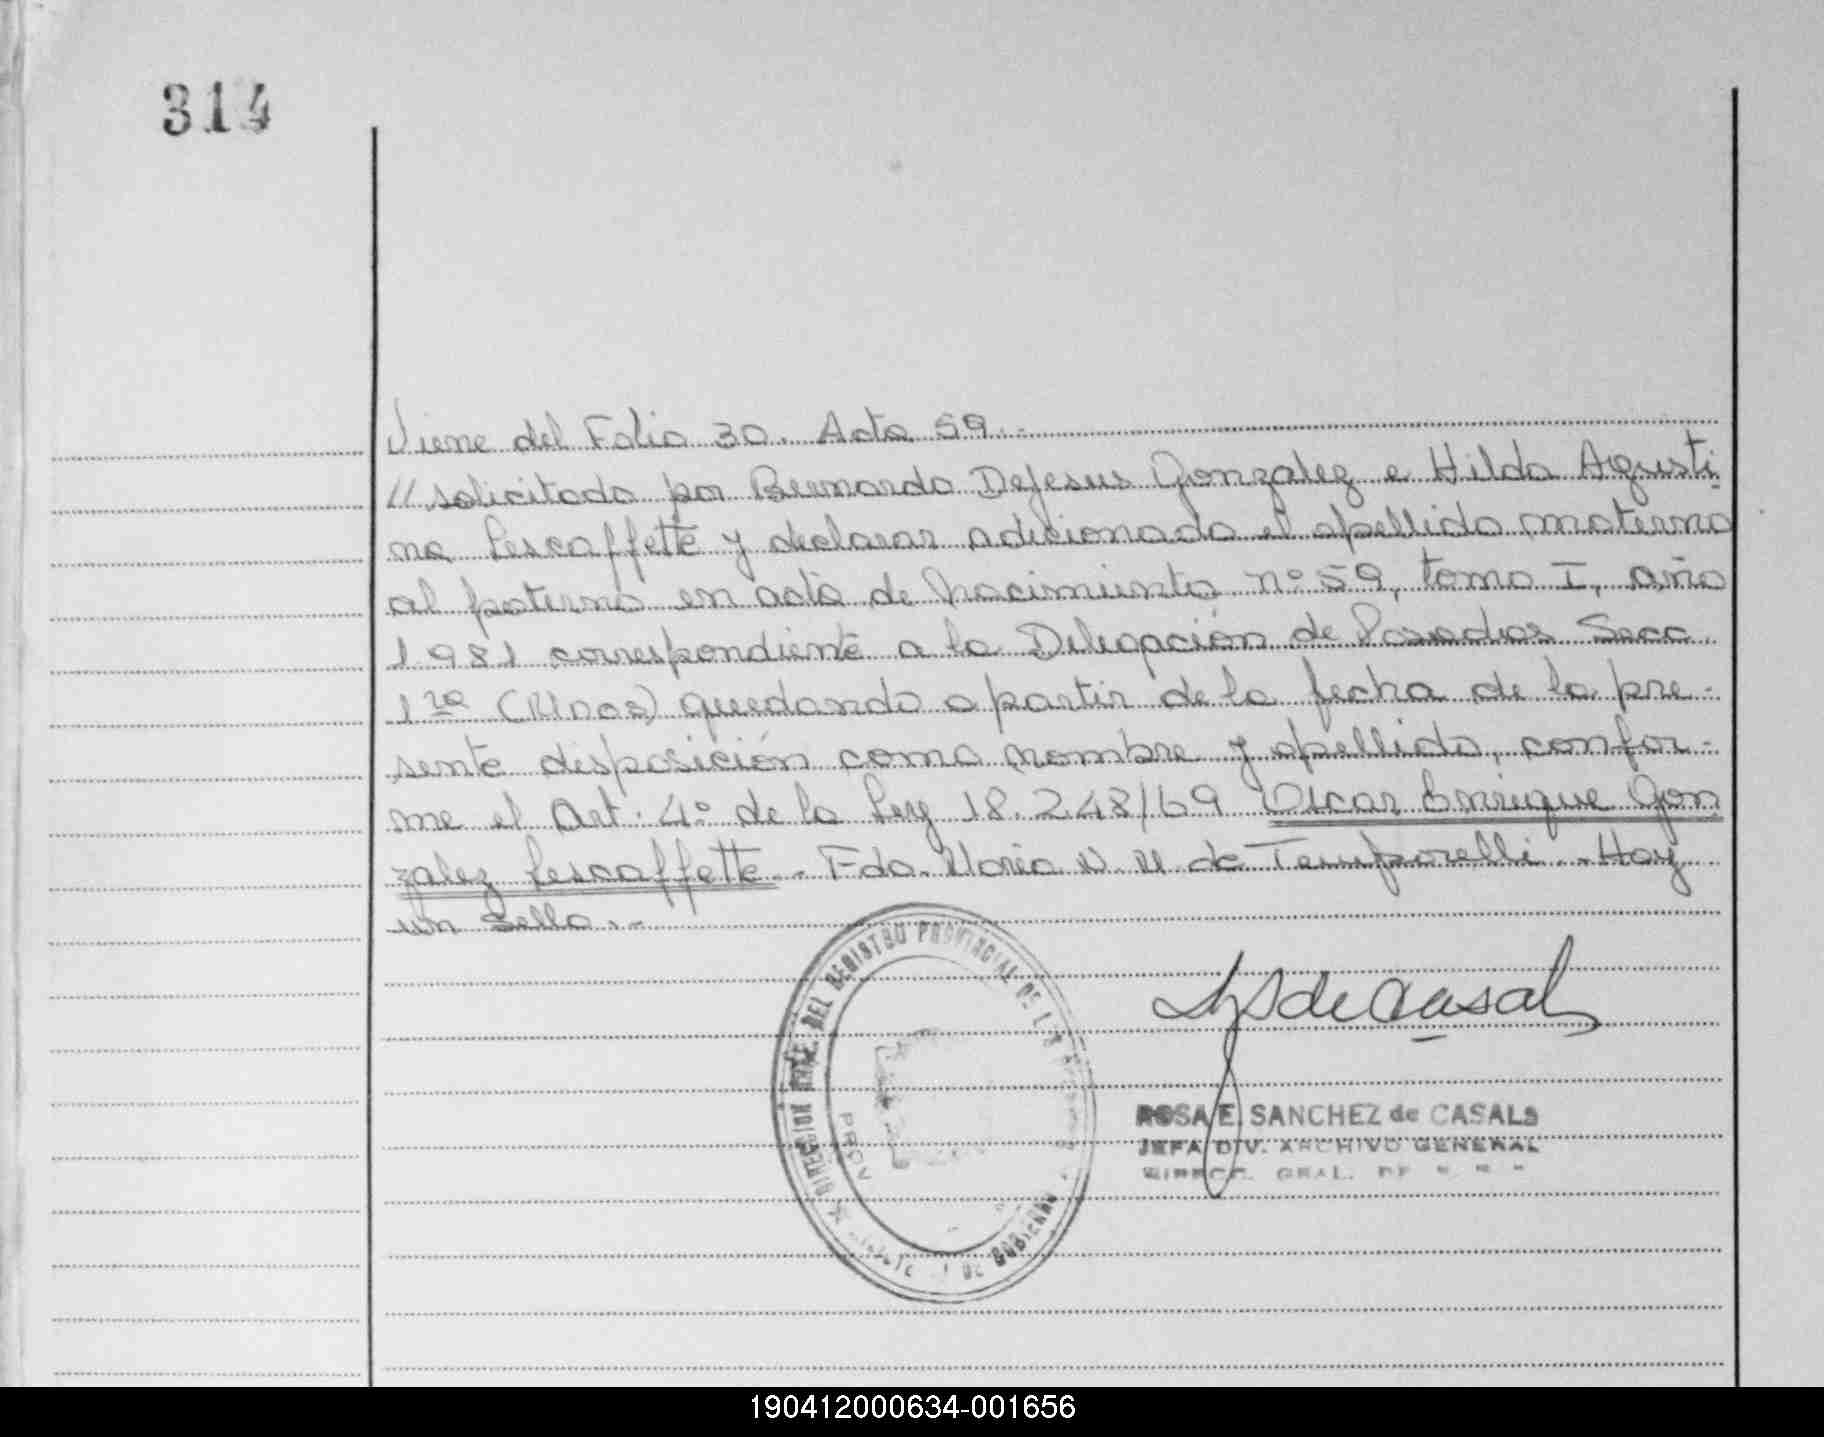 314
Viene del Folio 30. Acta 59.-
// solicitado por Bernardo DeJesus Gonzalez e Hilda Agusti
na Lescaffette y declarar adicionado el apellido materno
al paterno en acta de Nacimiento nº 59, tomo I, año
1981 correspondiente a la Delegación de Posadas Secc.
1ra (Mnes) quedando a partir de la fecha de la pre-
sente disposición como nombre y apellido, confor-
me el Art. 4º de la Ley 18.248/69 Oscar Enrique Gon
zalez Lescaffette.- Fdo. María N. M. de Temporelli.- Hay
un sello.-
DIRECCION GRAL. DEL REGISTRO PROVINCIAL DE L
PROV
DE GOBIERNO
de Casals
ROSA E. SANCHEZ de CASALS
JEFA DIV. ARCHIVO GENERAL
DIRECC. GRAL. DE
190412000634-001656